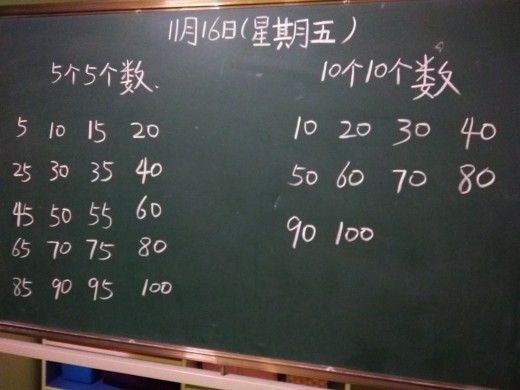 11月16日(星期五)
5个5个数.
5 10 15 20
25 30 35 40
45 50 55 60
65 70 75 80
85 90 95 100
10个10个数
10 20 30 40
50 60 70 80
90 100